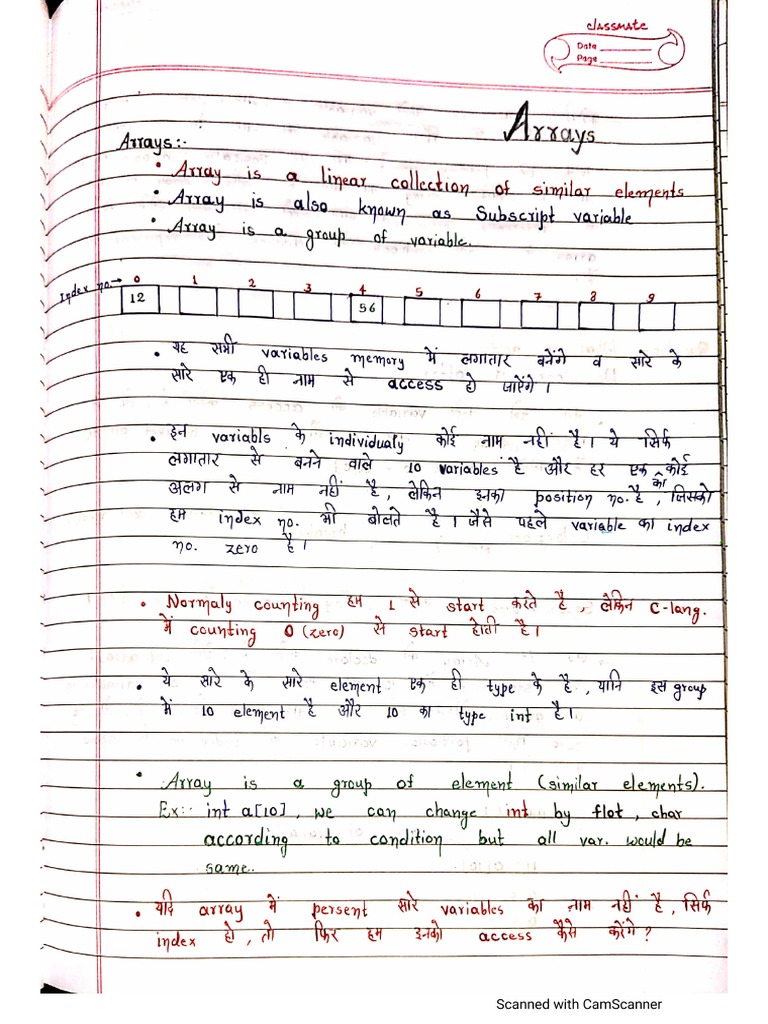 classmate
Date
Page
Arrays
Arrays:-
• Array is a linear collection of similar elements
• Array is also known as Subscript variable
• Array is a group of variable.
Index no. → 0 1 2 3 4 5 6 7 8 9
12 56
• यह सभी variables memory में लगातार बनेंगे व सारे के
सारे एक ही नाम से access हो जाएंगे।
• इन variabls के individualy कोई नाम नहीं है। ये सिर्फ
लगातार से बनने वाले 10 variables है और हर एक का कोई
अलग से नाम नहीं है, लेकिन इनका position no. है, जिसको
हम index no. भी बोलते है। जैसे पहले variable का index
no. zero है।
• Normaly counting हम 1 से start करते है, लेकिन C-lang.
में counting 0 (zero) से start होती है।
• ये सारे के सारे element एक ही type के है, यानि इस group
में 10 element है और 10 का type int है।
• Array is a group of element (similar elements).
Ex:- int a[10], we can change int by flot, char
according to condition but all var. would be
same..
• यदि array में persent सारे variables का नाम नहीं है, सिर्फ
index हो, तो फिर हम इनको access कैसे करेंगे?
Scanned with CamScanner